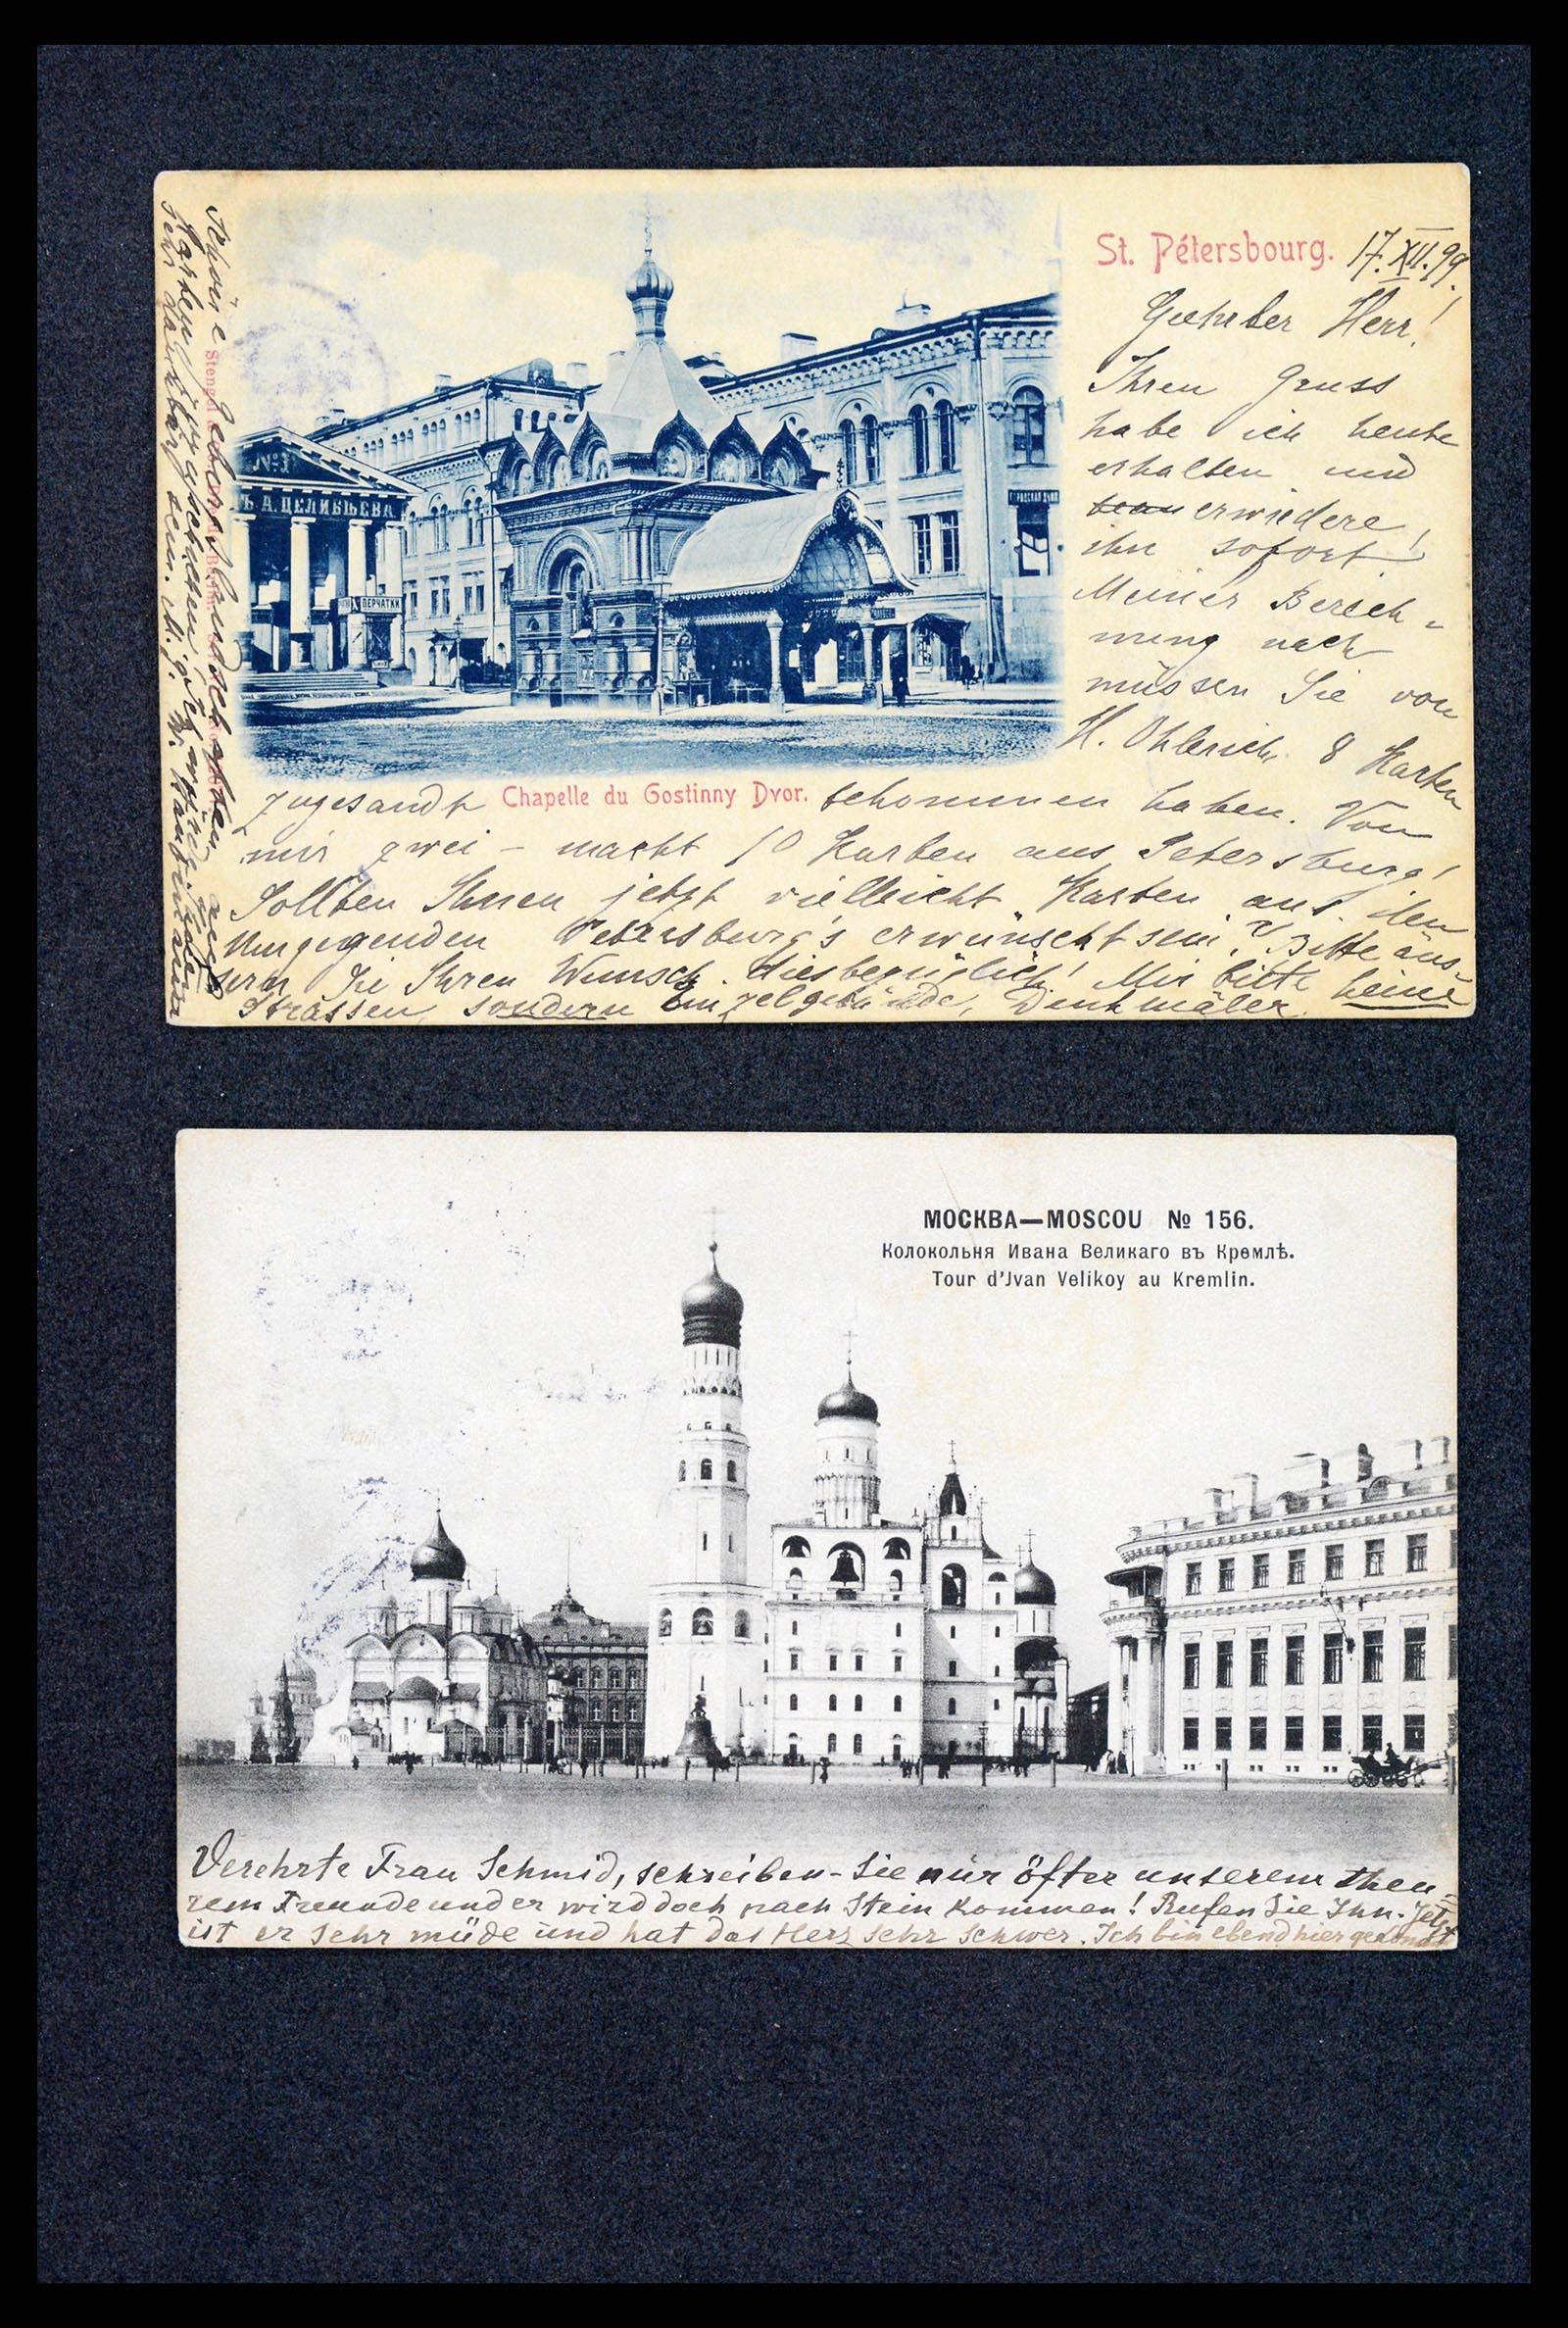 St. Pétersbourg. 17.XII.99.
Geehrter Herr!
Ihren Gruss
habe ich heute
erhalten und
erwiedere
ihn sofort!
Meiner Berech-
nung nach
müssen Sie von
H. Ohlerich 8 Karten
zugesandt Chapelle du Gostinny Dvor. bekommen haben. Von
mir zwei – macht 10 Karten aus Petersburg!
Sollten Ihnen jetzt vielleicht Karten aus den
Umgegenden Petersburg's erwünscht sein? Bitte äus-
sern Sie Ihren Wunsch diesbezüglich! Mir bitte keine
Strassen, sondern Einzelgebäude, Denkmäler.
№ 1
Ъ. А. ЦЕЛИБѢЕВА
ПЕРЧАТКИ
МОСКВА—MOSCOU № 156.
Колокольня Ивана Великаго въ Кремлѣ.
Tour d'Jvan Velikoy au Kremlin.
Verehrte Frau Schmid, schreiben Sie nur öfter unserem theu-
rem Freunde und er wird doch nach Stein kommen! Rufen Sie Ihn. Jetzt
ist er sehr müde und hat das Herz sehr schwer. Ich bin ebend hier